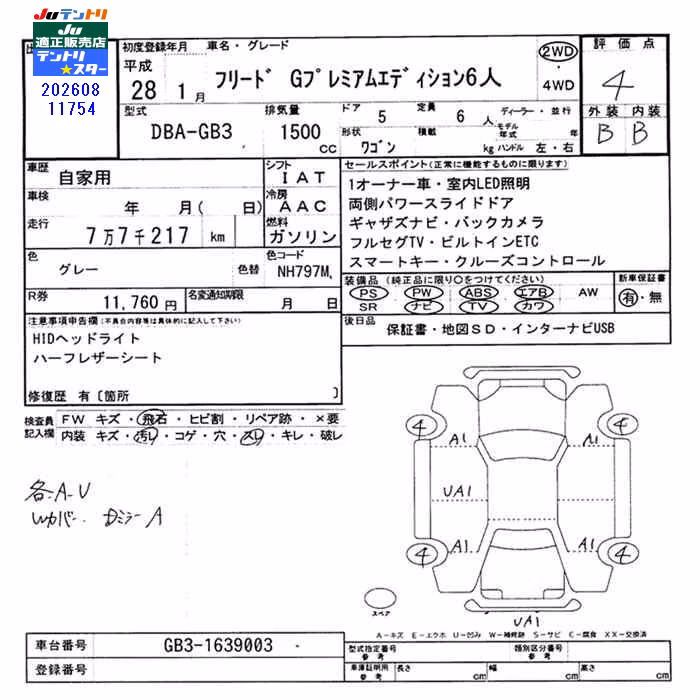 Juテントリ
Ju
適正販売店
テントリ
★スター
202608
11754
初度登録年月 車名・グレード
平成
28 1月
フリード Gプレミアムエディション6人
2WD
4WD
評価点
4
外装 内装
B B
型式
DBA-GB3
排気量
1500
cc
ドア 5
定員 6人
ディーラー・並行
形状 ワゴン
積載 kg
モデル年式 年
ハンドル 左・右
車歴
自家用
シフト
IAT
車検 年 月( 日)
冷房
AAC
走行 7万7千217 km
燃料
ガソリン
色
グレー
色替
色コード
NH797M
R券
11,760円
名変通知期限
月 日
セールスポイント(正常に機能するものに限ります)
1オーナー車・室内LED照明
両側パワースライドドア
ギャザズナビ・バックカメラ
フルセグTV・ビルトインETC
スマートキー・クルーズコントロール
装備品(純正品に限り○をつけてください)
PS PW ABS エアB AW
SR ナビ TV カワ
新車保証書
有・無
後日品
保証書・地図SD・インターナビUSB
注意事項申告欄(不具合内容等は具体的に記入して下さい)
HIDヘッドライト
ハーフレザーシート
修復歴 有〔箇所 〕
検査員
記入欄
FW キズ・飛石・ヒビ割・リペア跡・×要
内装 キズ・汚レ・コゲ・穴・スレ・キレ・破レ
各A-U
Wカバー Dミラー A
4
A1
A1
4
UA1
4
A1
A1
4
スペア
UA1
A-キズ E-エクボ U-凹み W-補修跡 S-サビ C-腐食 XX-交換済
車台番号
GB3-1639003
登録番号
型式指定番号
参考
類別区分番号
参考
車庫証明用
参考
長さ cm
幅 cm
高さ cm